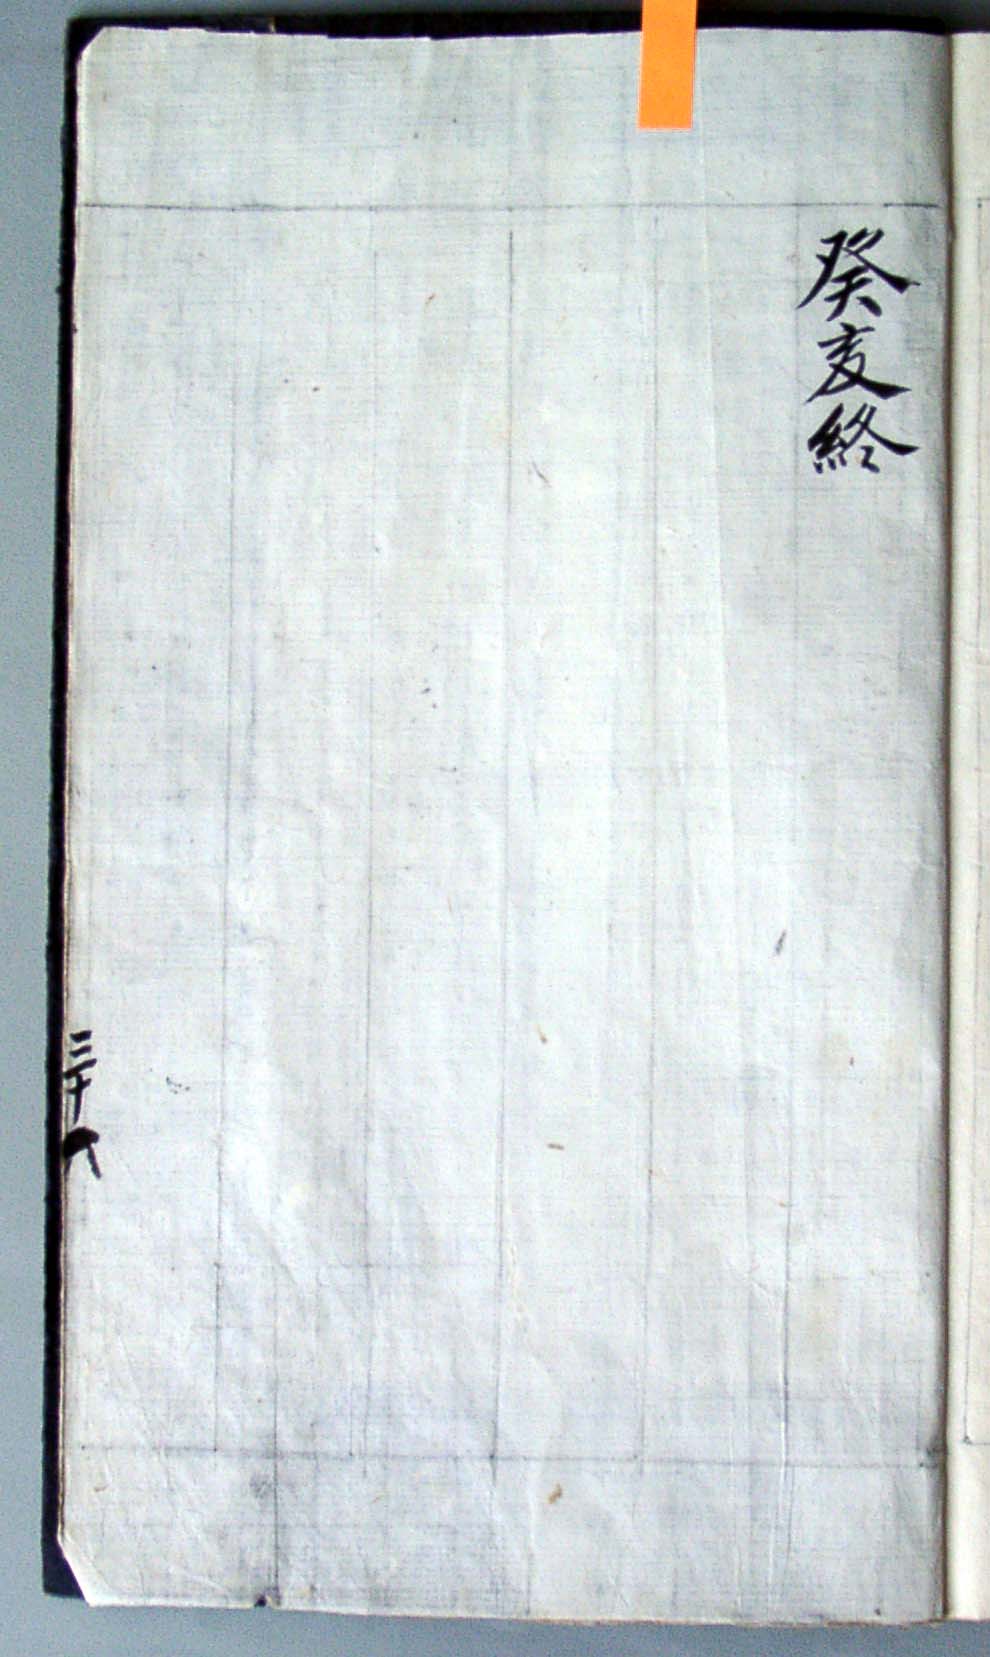 癸亥終
三十八